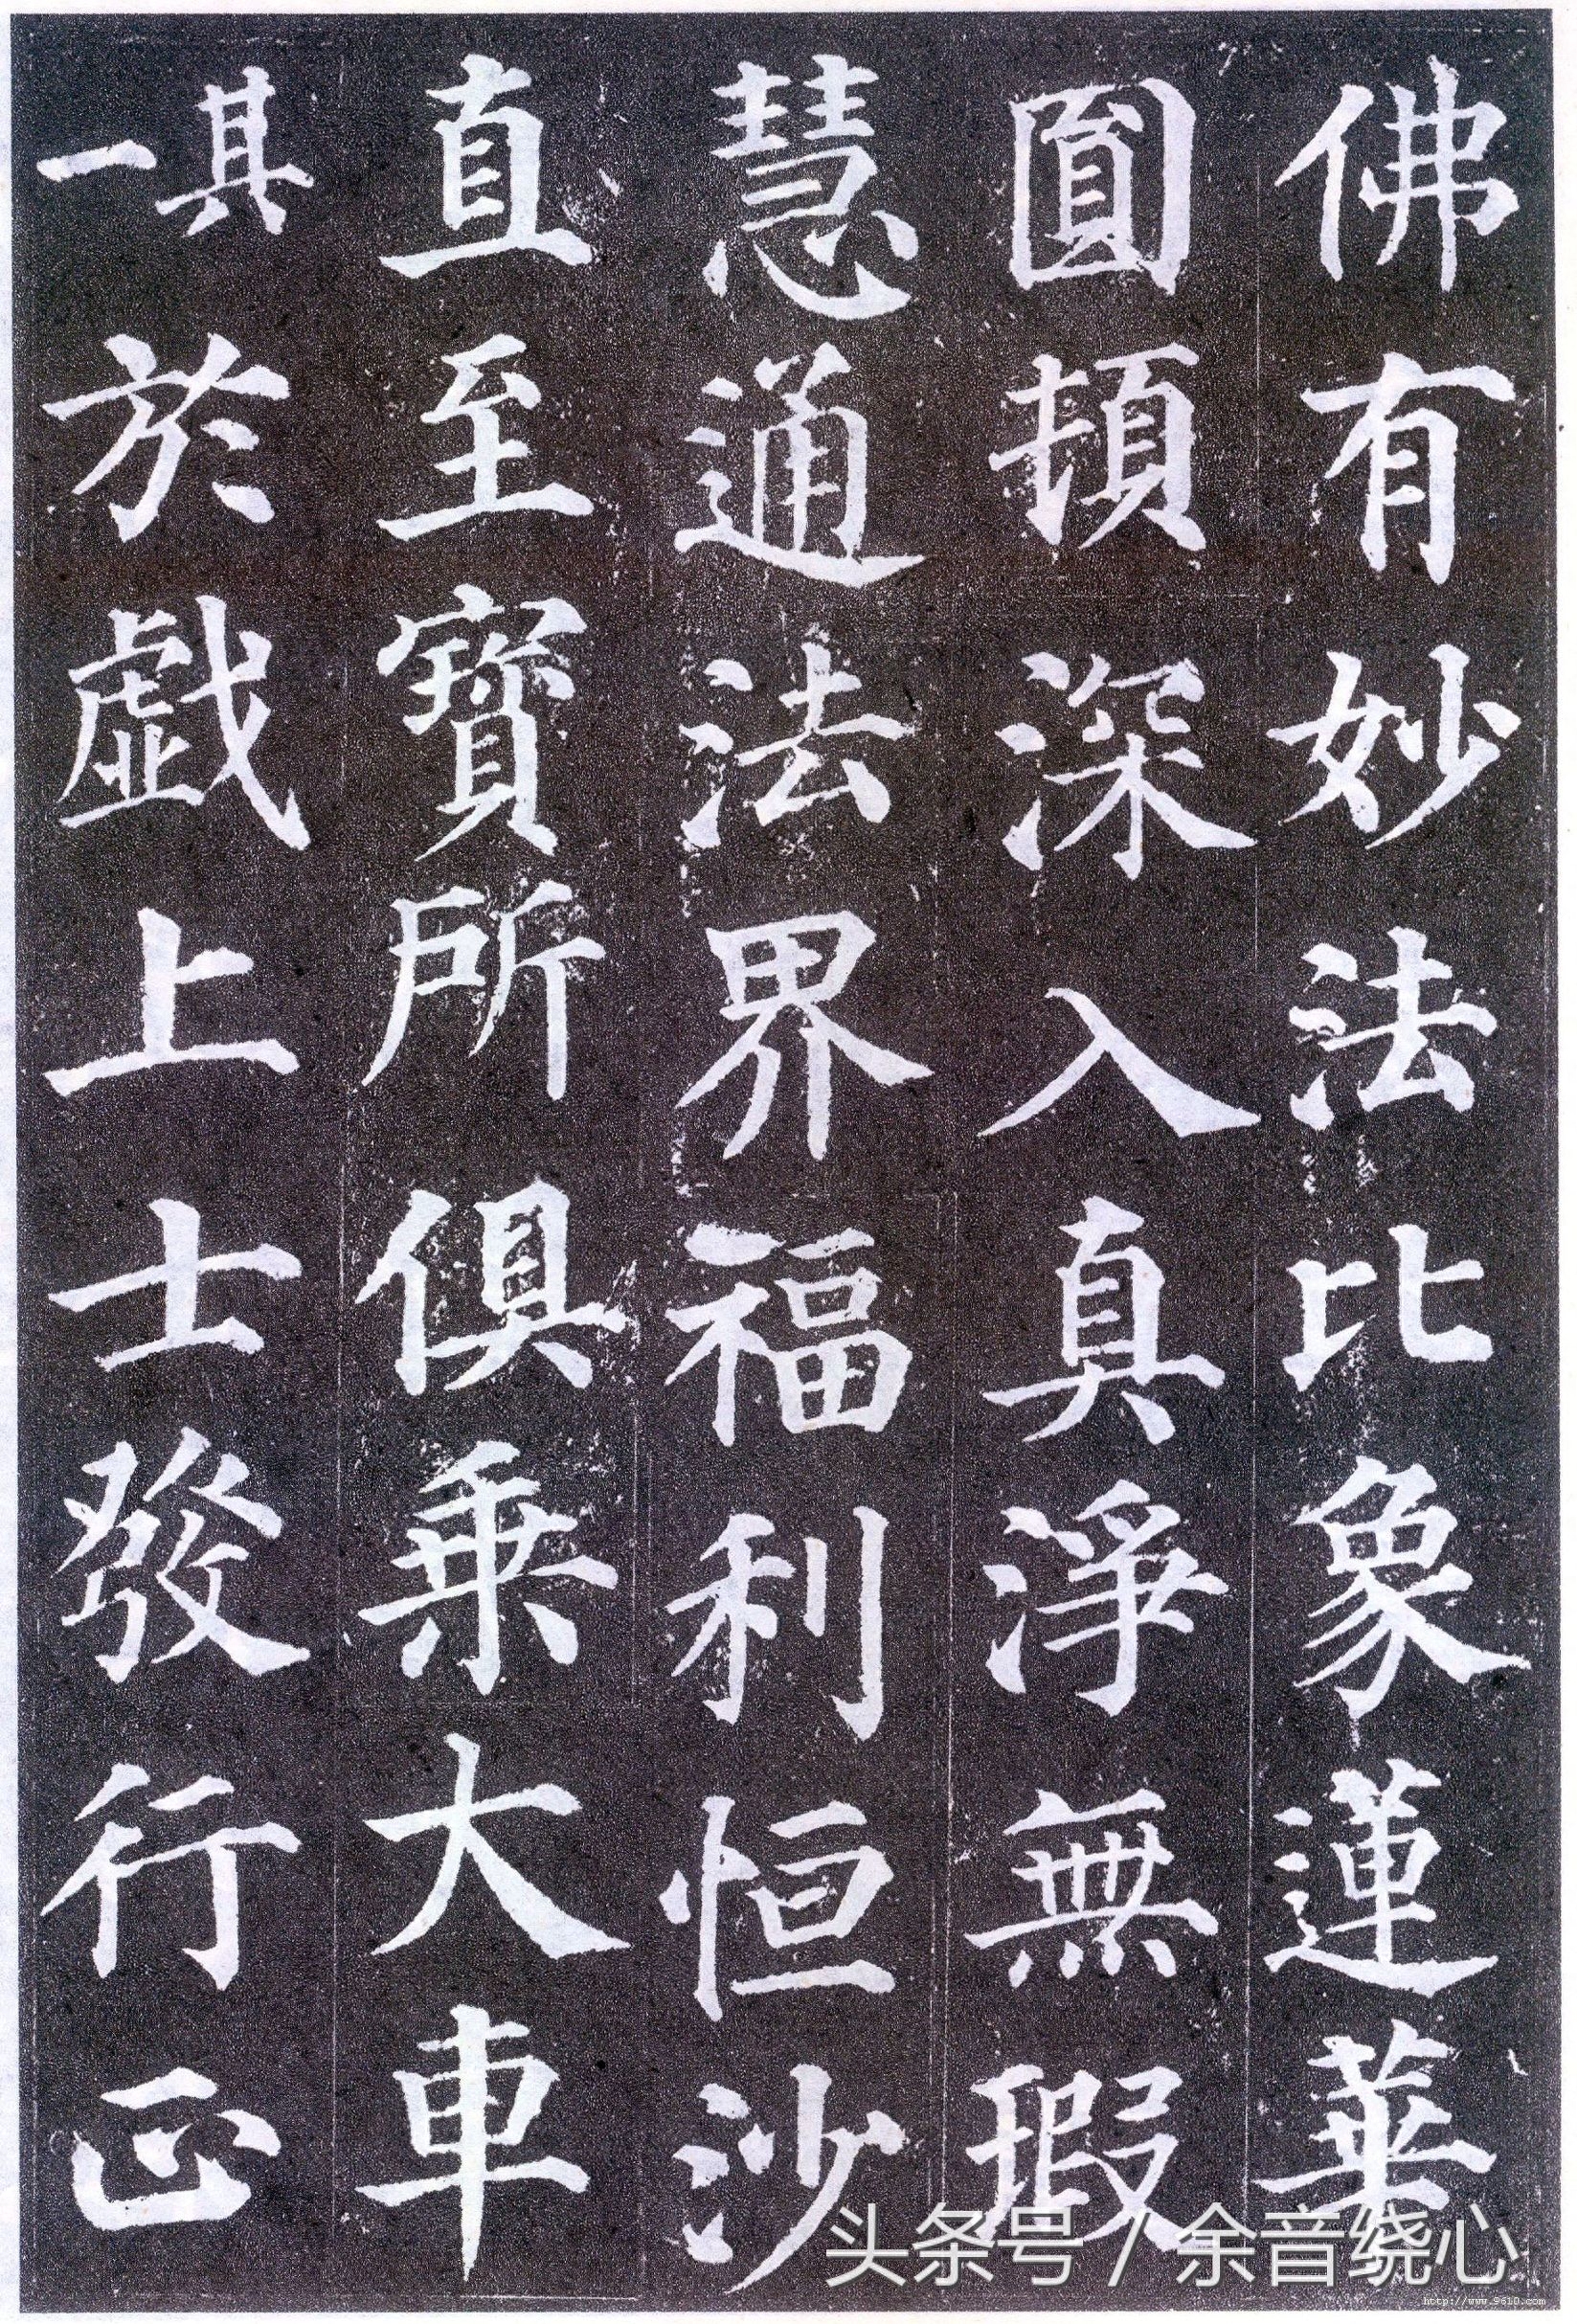 佛有妙法比象蓮華
圓頓深入真淨無瑕
慧通法界福利恒沙
直至寶所俱乗大車
其一於戯上士發行正
头条号 / 余音绕心
http://www.9610.com